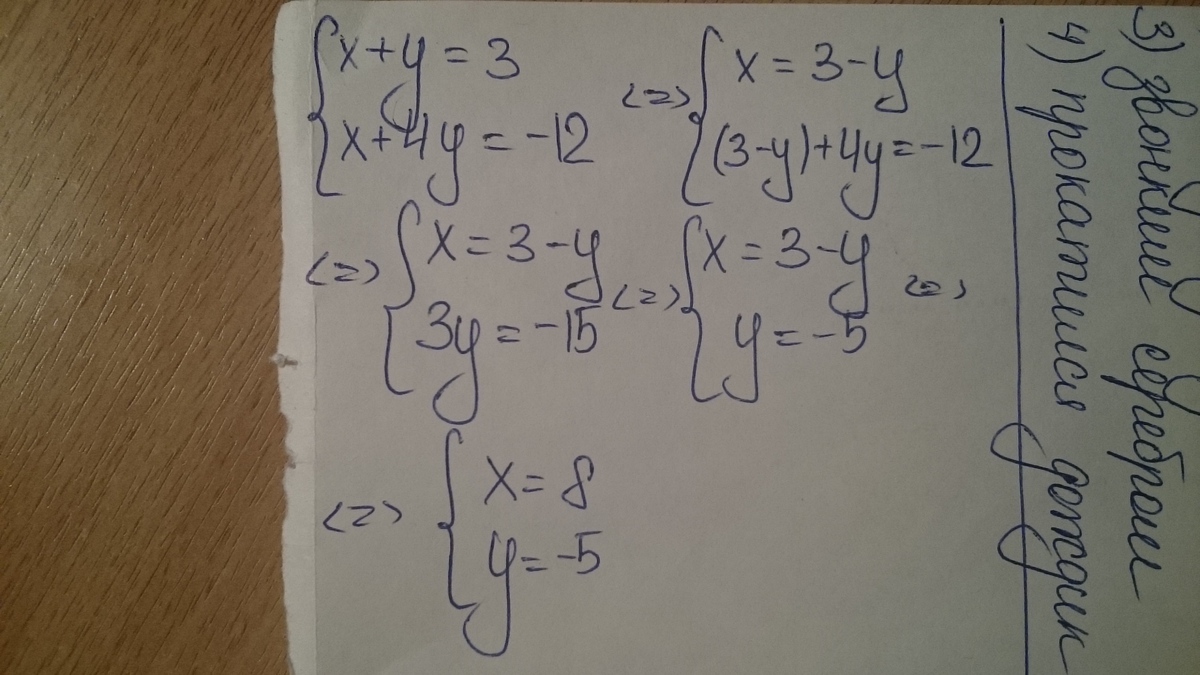 x+y=3
x+4y=-12
<=> x=3-y
(3-y)+4y=-12
<=> x=3-y
3y=-15
<=> x=3-y
y=-5
<=>
<=> x=8
y=-5
3) звонким серебром
4) прокатился дождик